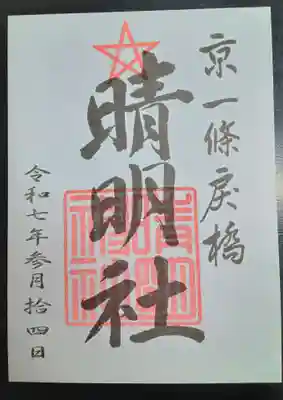 京一條戻橋
晴明社
令和七年参月拾四日